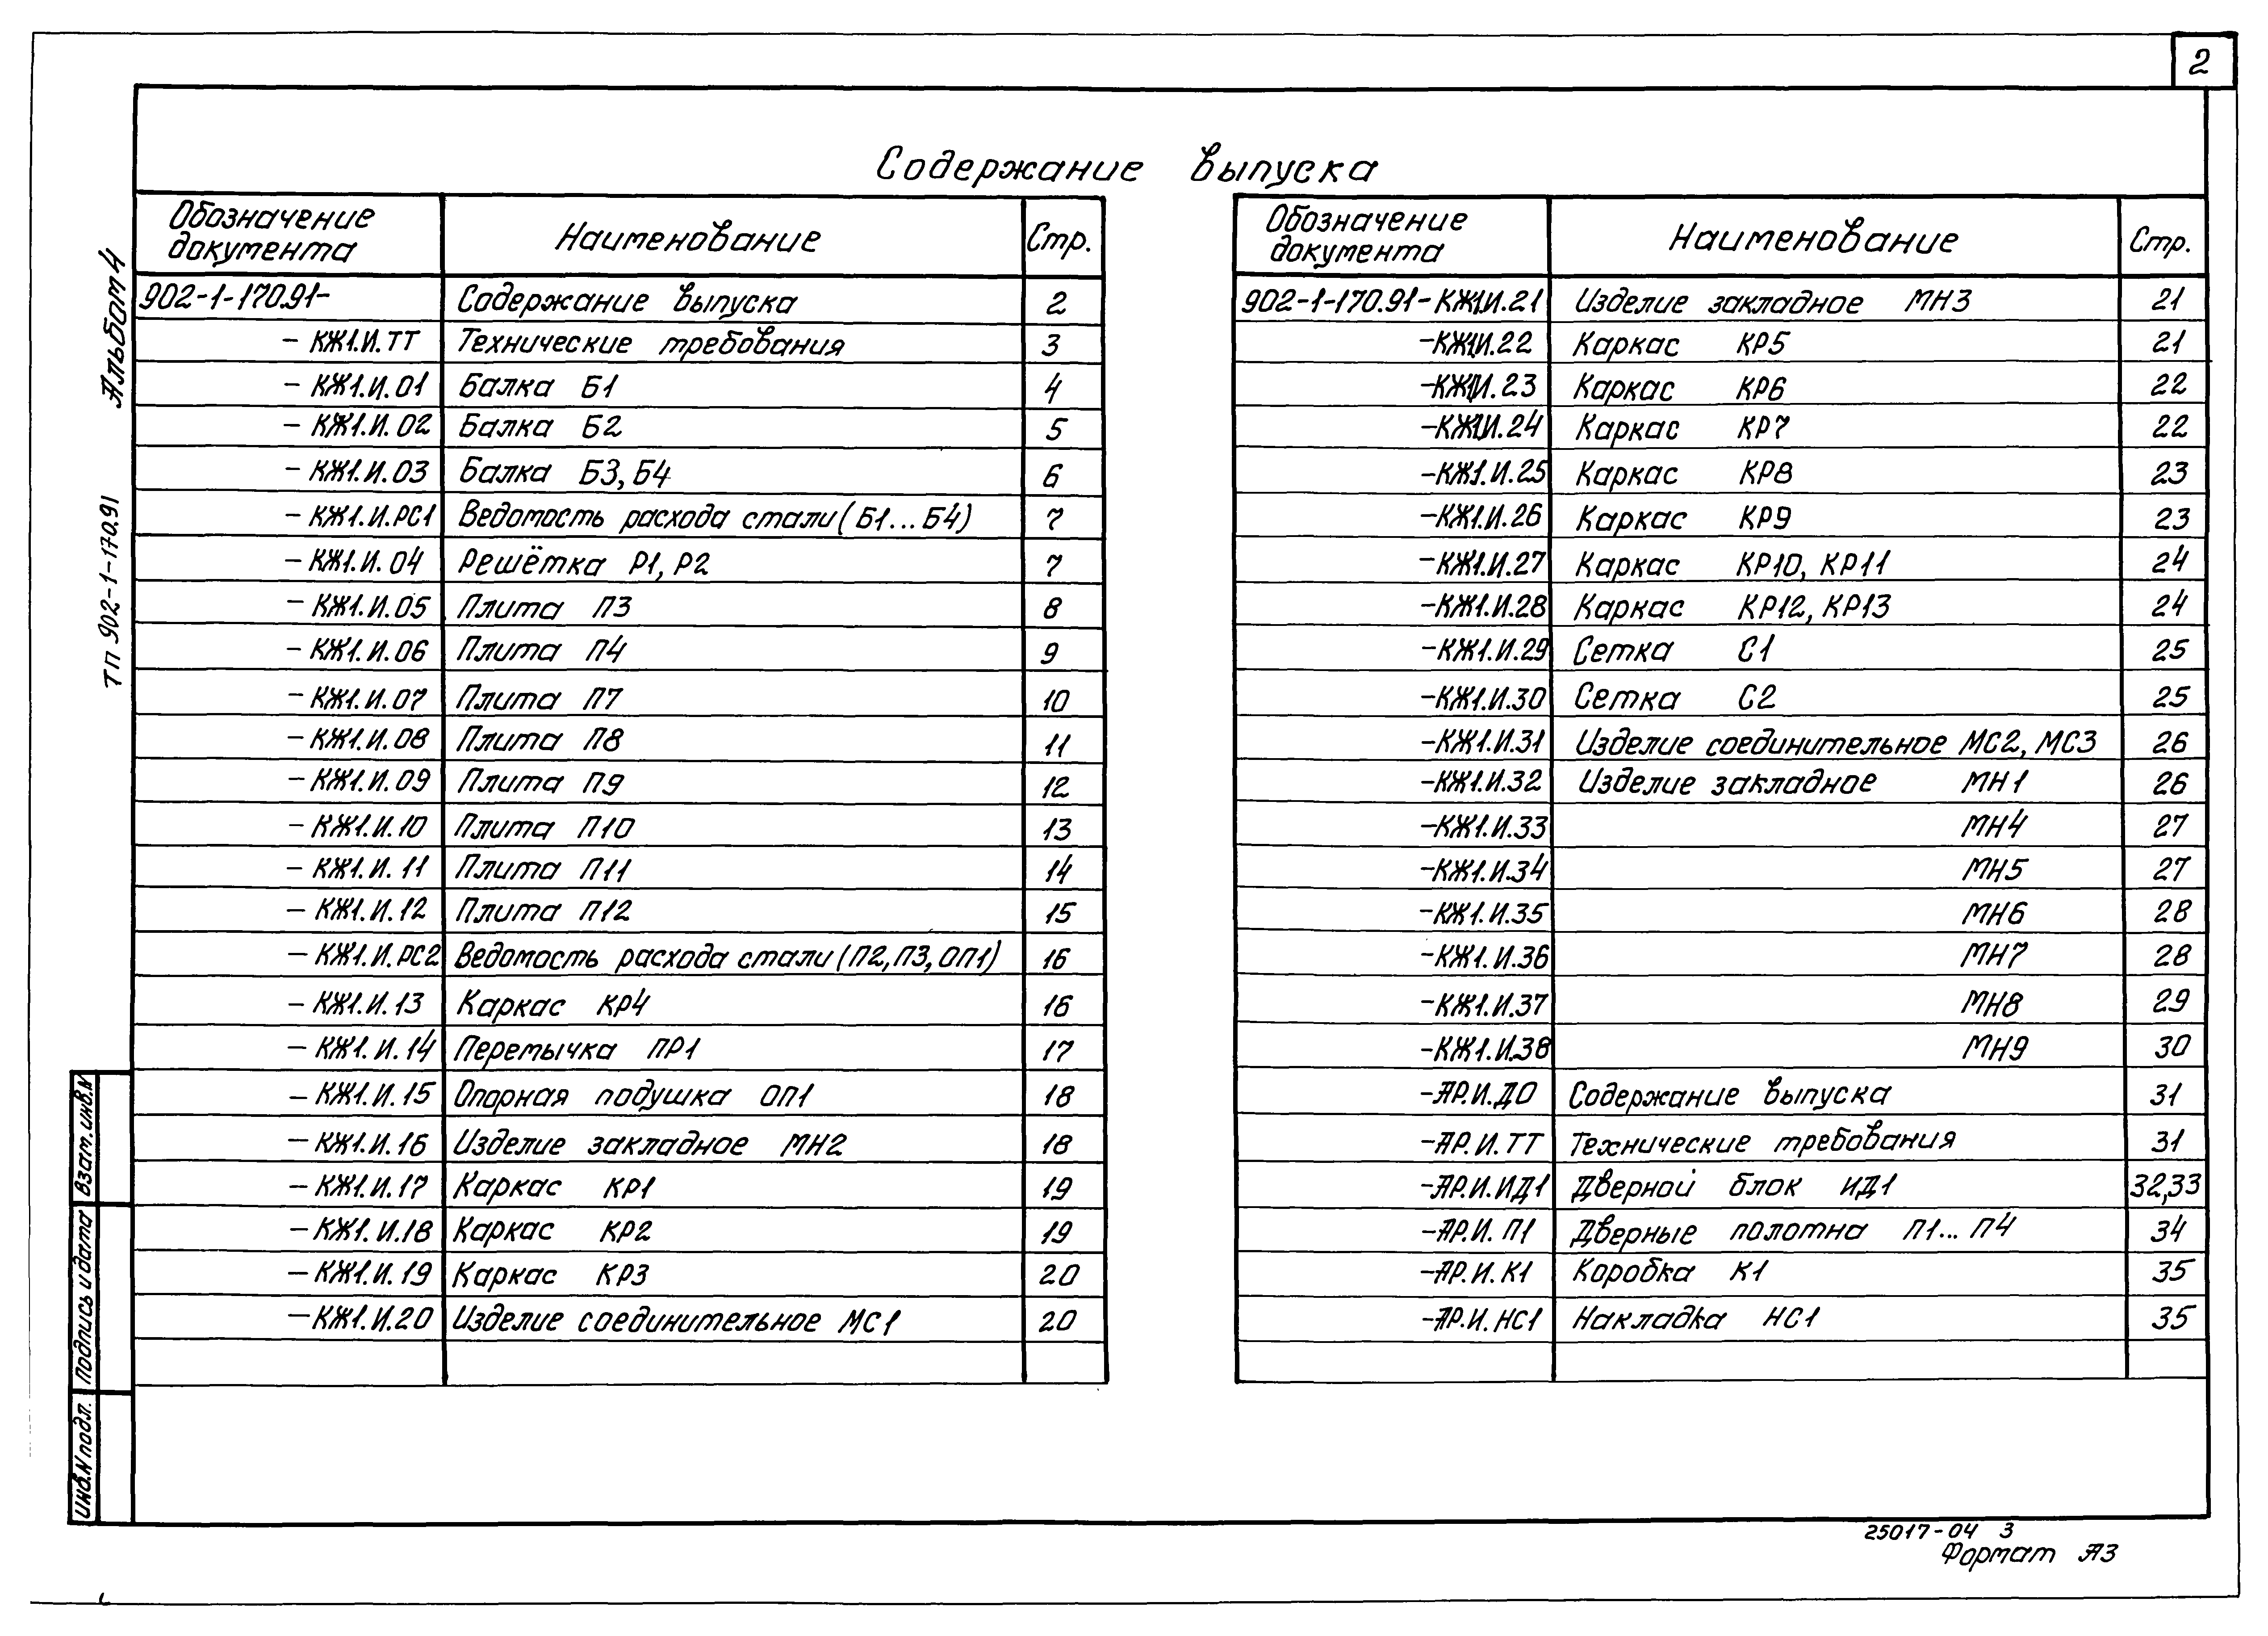 2
Содержание выпуска
Альбом 4
ТП 902-1-170.91
Обозначение документа Наименование Стр.
902-1-170.91- Содержание выпуска 2
- КЖ1.И.ТТ Технические требования 3
- КЖ1.И.01 Балка Б1 4
- КЖ1.И.02 Балка Б2 5
- КЖ1.И.03 Балка Б3, Б4 6
- КЖ1.И.РС1 Ведомость расхода стали (Б1...Б4) 7
- КЖ1.И.04 Решётка Р1, Р2 7
- КЖ1.И.05 Плита П3 8
- КЖ1.И.06 Плита П4 9
- КЖ1.И.07 Плита П7 10
- КЖ1.И.08 Плита П8 11
- КЖ1.И.09 Плита П9 12
- КЖ1.И.10 Плита П10 13
- КЖ1.И.11 Плита П11 14
- КЖ1.И.12 Плита П12 15
- КЖ1.И.РС2 Ведомость расхода стали (П2, П3, ОП1) 16
- КЖ1.И.13 Каркас КР4 16
- КЖ1.И.14 Перемычка ПР1 17
- КЖ1.И.15 Опорная подушка ОП1 18
- КЖ1.И.16 Изделие закладное МН2 18
- КЖ1.И.17 Каркас КР1 19
- КЖ1.И.18 Каркас КР2 19
- КЖ1.И.19 Каркас КР3 20
- КЖ1.И.20 Изделие соединительное МС1 20
Обозначение документа Наименование Стр.
902-1-170.91-КЖ1.И.21 Изделие закладное МН3 21
-КЖ1.И.22 Каркас КР5 21
-КЖ1.И.23 Каркас КР6 22
-КЖ1.И.24 Каркас КР7 22
-КЖ1.И.25 Каркас КР8 23
-КЖ1.И.26 Каркас КР9 23
-КЖ1.И.27 Каркас КР10, КР11 24
-КЖ1.И.28 Каркас КР12, КР13 24
-КЖ1.И.29 Сетка С1 25
-КЖ1.И.30 Сетка С2 25
-КЖ1.И.31 Изделие соединительное МС2, МС3 26
-КЖ1.И.32 Изделие закладное МН1 26
-КЖ1.И.33 МН4 27
-КЖ1.И.34 МН5 27
-КЖ1.И.35 МН6 28
-КЖ1.И.36 МН7 28
-КЖ1.И.37 МН8 29
-КЖ1.И.38 МН9 30
-АР.И.ДО Содержание выпуска 31
-АР.И.ТТ Технические требования 31
-АР.И.ИД1 Дверной блок ИД1 32,33
-АР.И.П1 Дверные полотна П1...П4 34
-АР.И.К1 Коробка К1 35
-АР.И.НС1 Накладка НС1 35
Взам.инв.N
Подпись и дата
Инв.N подл.
25017-04 3
Формат А3